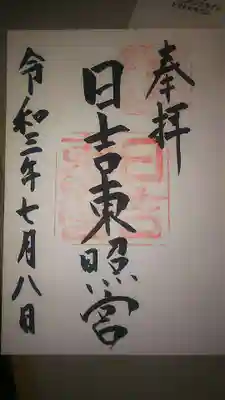 奉拝
日吉東照宮
令和三年七月八日